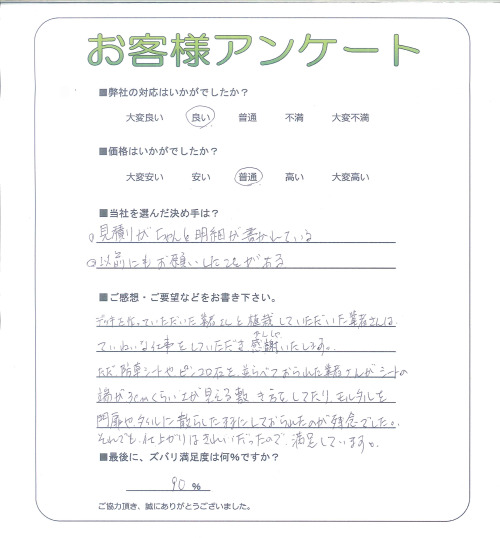 お客様アンケート
■弊社の対応はいかがでしたか？
大変良い 良い 普通 不満 大変不満
■価格はいかがでしたか？
大変安い 安い 普通 高い 大変高い
■当社を選んだ決め手は？
見積りがちゃんと明細が書かれている
②以前にもお願いしたことがある
■ご感想・ご要望などをお書き下さい。
デッキを作っていただいた業者さんと植栽していただいた業者さんは、
ていねいな仕事をしていただき感謝いたします。
かんしゃ
ただ防草シートやピンコロ石を並らべておられた業者さんがシートの
端が3cmくらい土が見える敷き方をしてたり、モルタルを
門扉やタイルに散らしたままにしておられたのが残念でした。
それでも仕上がりはきれいだったので、満足しています。
■最後に、ズバリ満足度は何%ですか？
90 %
ご協力頂き、誠にありがとうございました。